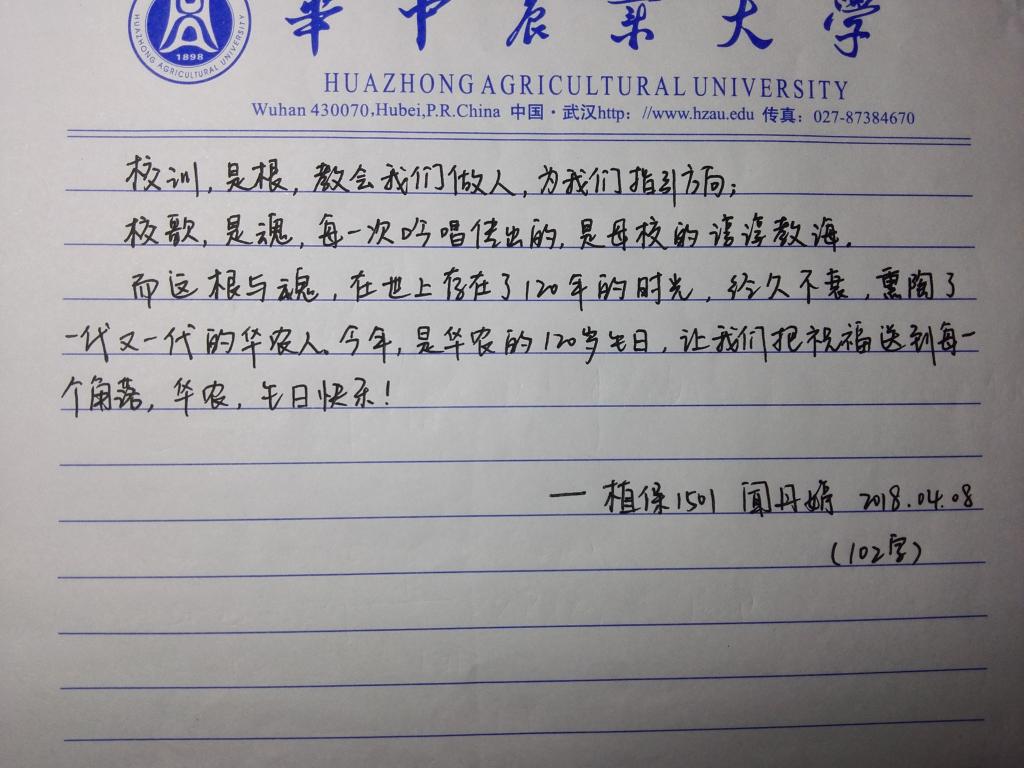 華中农业大学
1898
HUAZHONG AGRICULTURAL UNIVERSITY
HUAZHONG AGRICULTURAL UNIVERSITY
Wuhan 430070,Hubei,P.R.China 中国·武汉http：//www.hzau.edu 传真：027-87384670
校训，是根，教会我们做人，为我们指引方向；
校歌，是魂，每一次吟唱传出的，是母校的谆谆教诲．
而这根与魂，在世上存在了120年的时光，经久不衰，熏陶了
一代又一代的华农人。今年，是华农的120岁生日，让我们把祝福送到每一
个角落，华农，生日快乐！
— 植保1501 闻丹婷 2018.04.08
（102字）